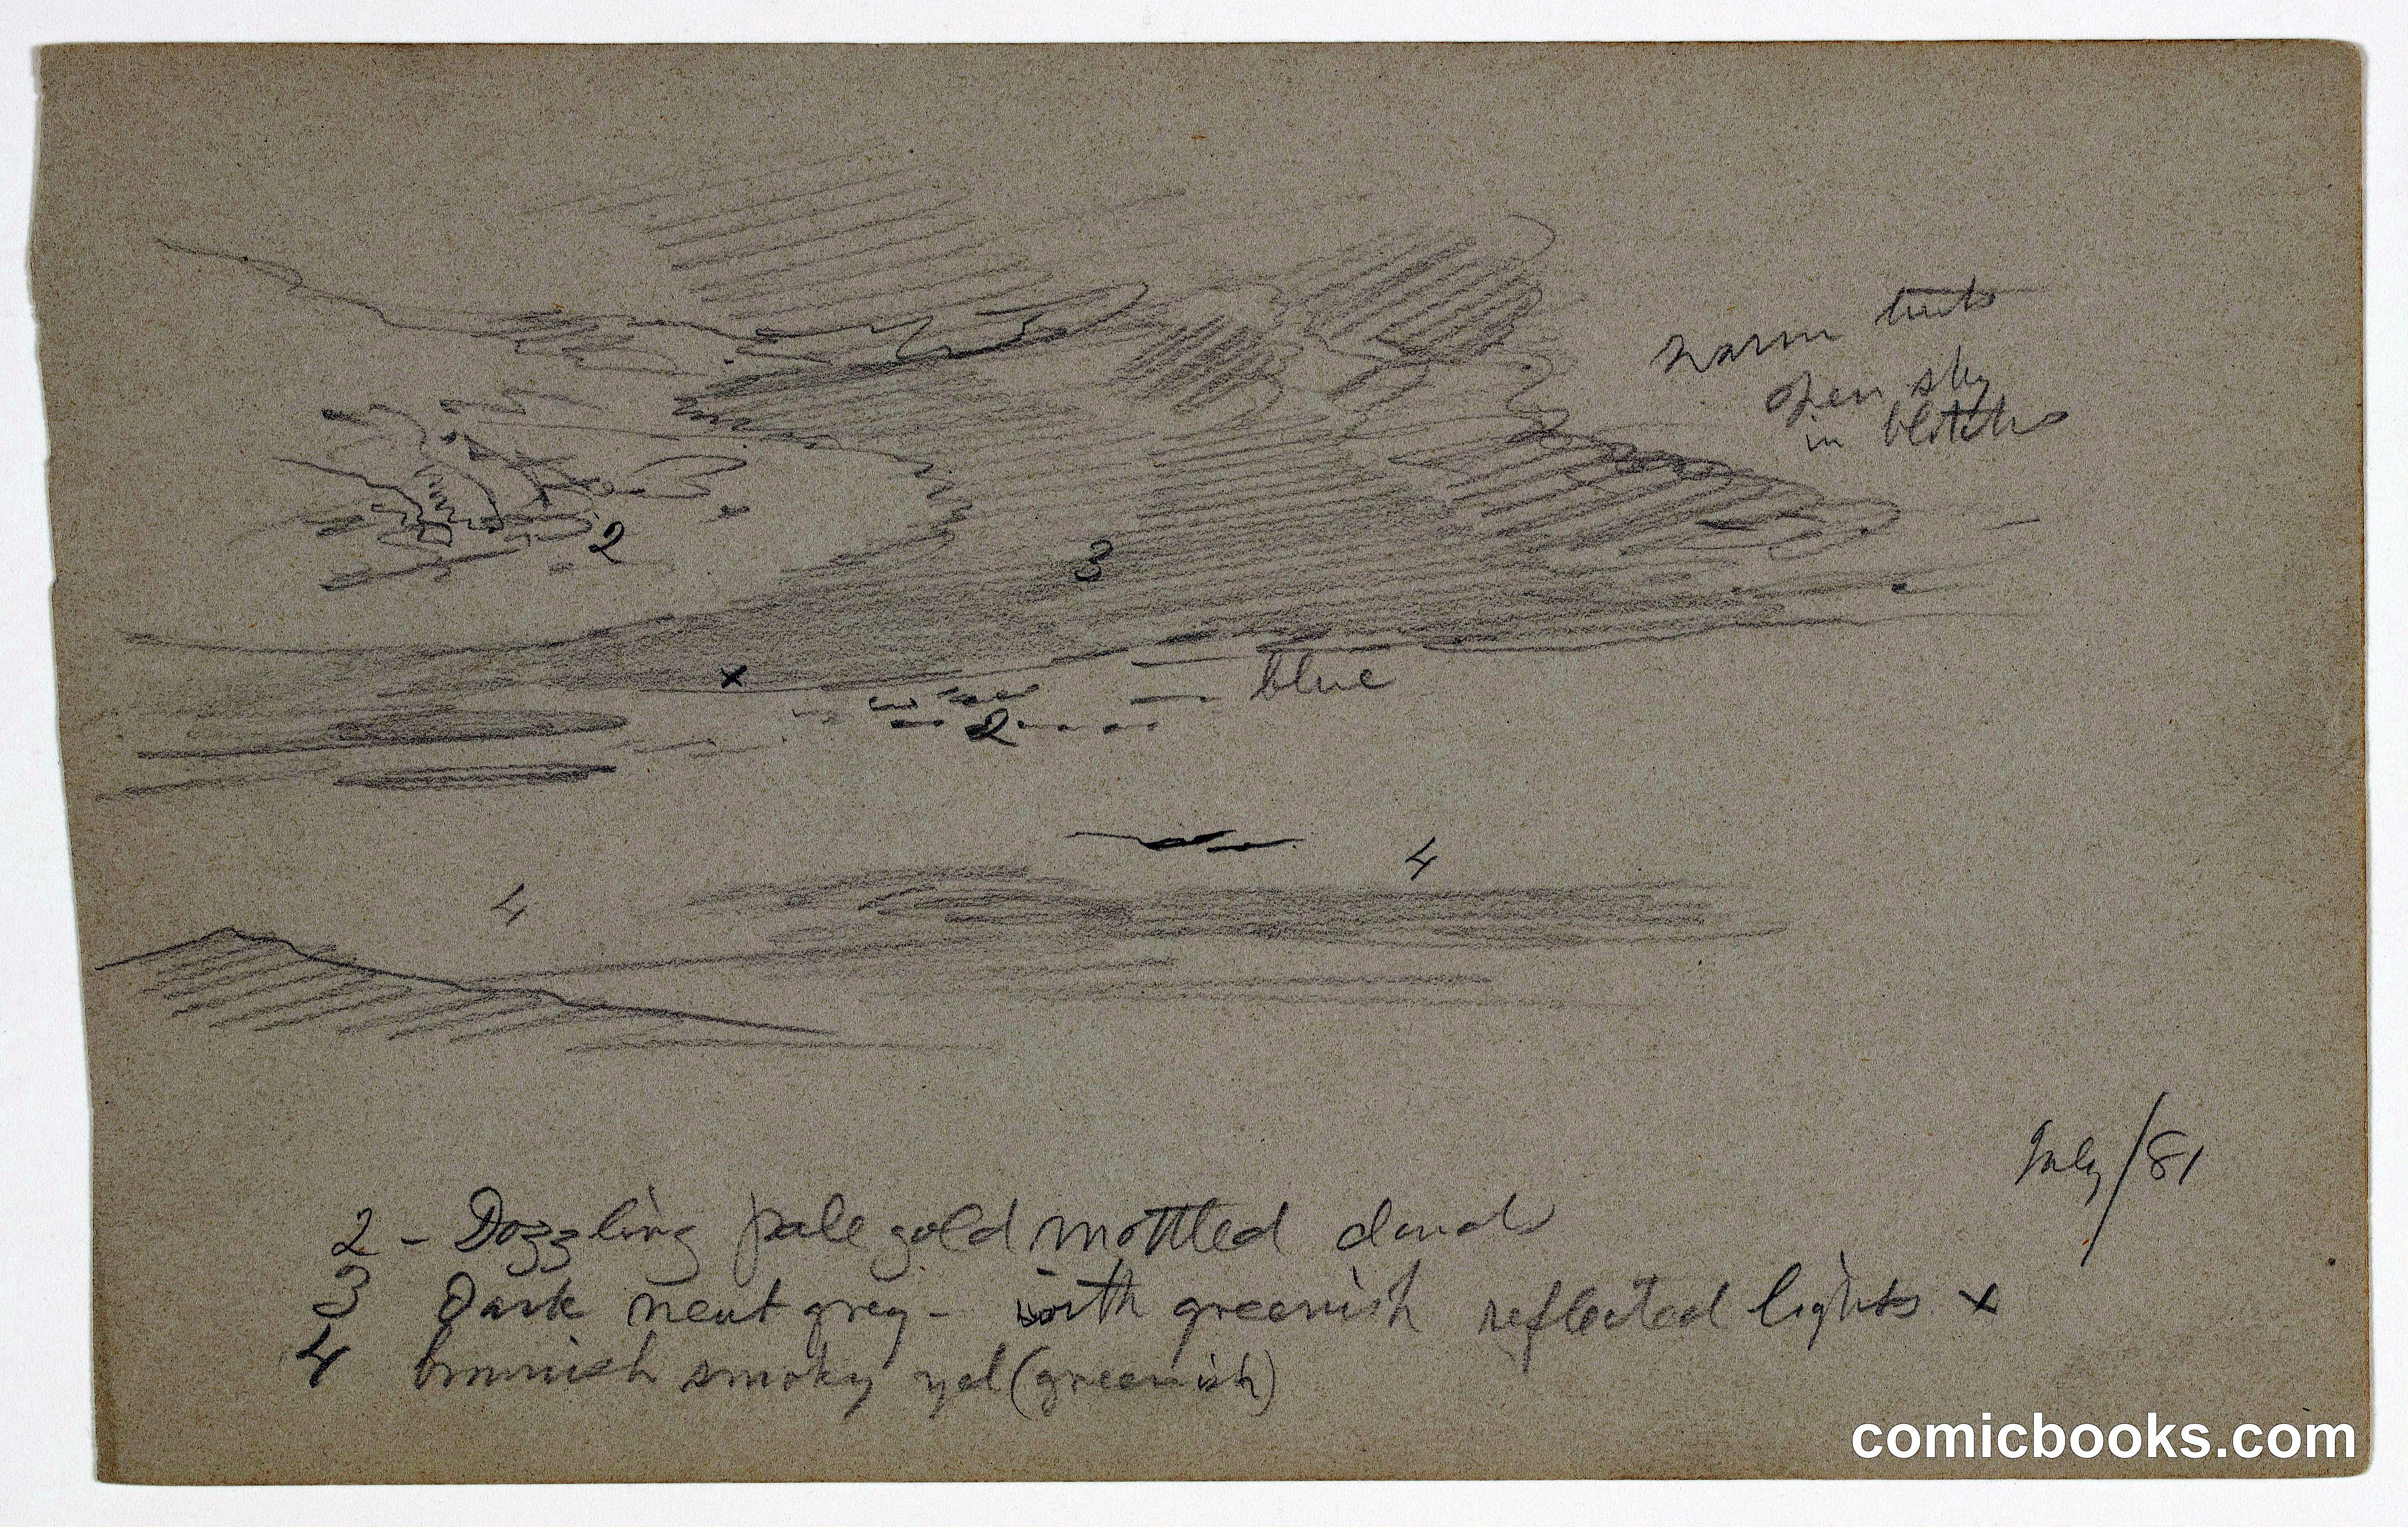 warm tints
open sky
in blotches
2
3
x
blue
2
4
4
July/81
2 - Dazzling pale gold mottled clouds
3 Dark neut grey - with greenish reflected lights x
4 brownish smoky yel (greenish)
comicbooks.com